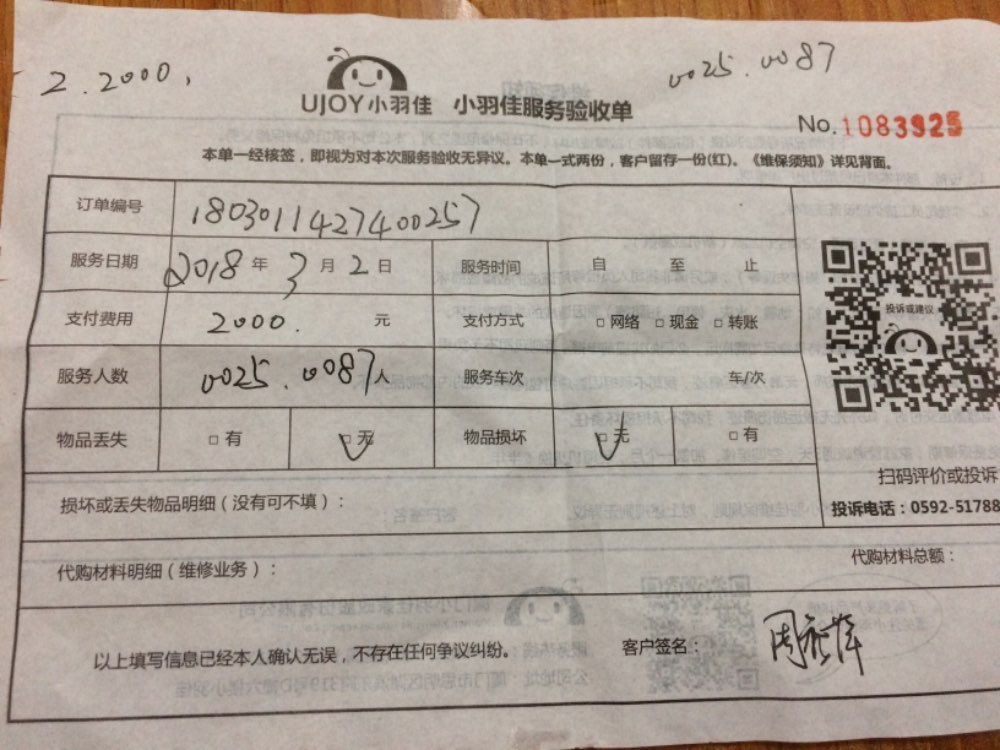 2.2000,
0025.0087
UJOY小羽佳 小羽佳服务验收单
No.1083925
本单一经核签，即视为对本次服务验收无异议。本单一式两份，客户留存一份(红)。《维保须知》详见背面。
订单编号 180301142740​0257
服务日期 2018 年 3 月 2 日 服务时间 自 至 止
支付费用 2000. 元 支付方式 □ 网络 □ 现金 □ 转账
服务人数 0025.0087人 服务车次 车/次
物品丢失 □ 有 □ 无 物品损坏 □ 无 □ 有
投诉或建议
扫码评价或投诉
投诉电话：0592-51788
损坏或丢失物品明细（没有可不填）：
代购材料明细（维修业务）： 代购材料总额：
以上填写信息已经本人确认无误，不存在任何争议纠纷。 客户签名：